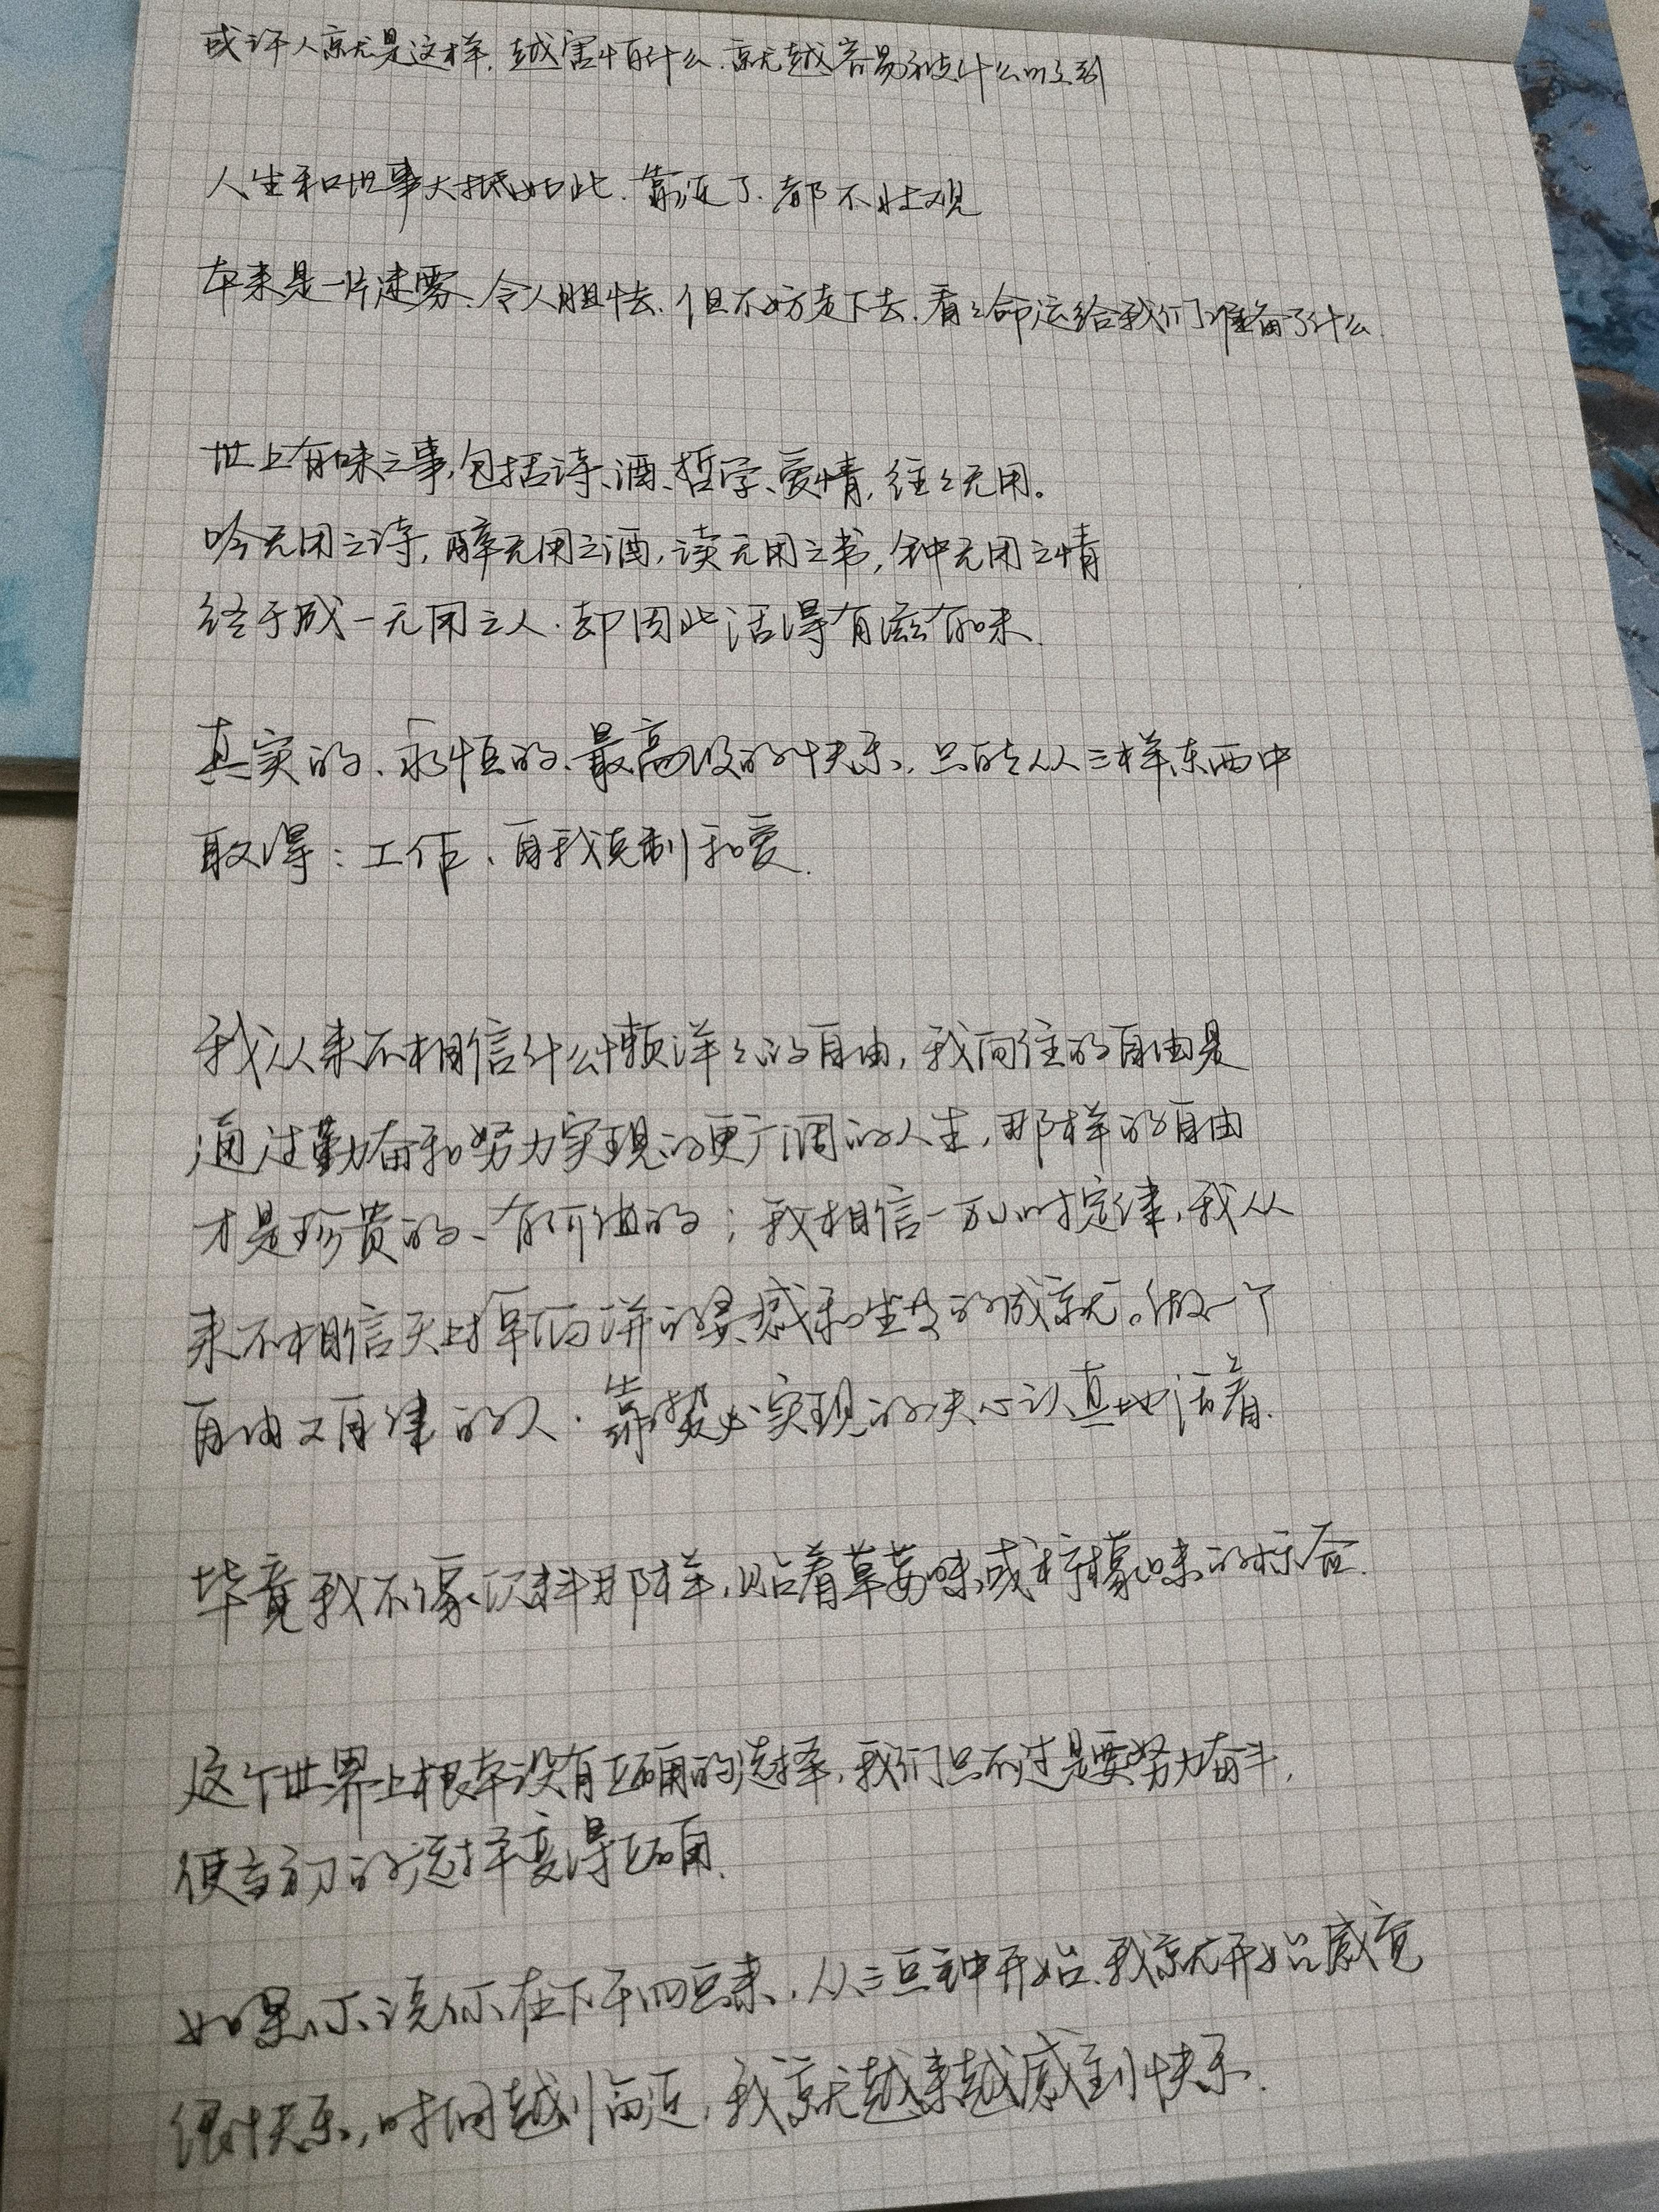 或许人就是这样.越害怕什么.就越容易被什么吓到
人生和世事大抵如此.靠近了.都不壮观
本来是一片迷雾.令人胆怯.但不妨走下去.看々命运给我们准备了什么.
世上有味之事,包括诗、酒、哲学、爱情,往々无用。
吟无用之诗,醉无用之酒,读无用之书,钟无用之情
终于成一无用之人.却因此活得有滋有味.
真实的、永恒的、最高级的快乐.只能从三样东西中
取得:工作、自我克制和爱.
我从来不相信什么懒洋々的自由,我向往的自由是
通过勤奋和努力实现的更广阔的人生,那样的自由
才是珍贵的、有价值的;我相信一万小时定律,我从
来不相信天上掉馅饼的灵感和坐及的成就。做一个
自由又自律的人.靠势必实现的决心认真地活着.
毕竟我不像饮料那样,贴着草莓味或柠檬味的标签.
这个世界上根本没有正确的选择,我们只不过是要努力奋斗,
使当初的选择变得正确.
如果你说你在下午四点来,从三点钟开始.我就开始感觉
很快乐,时间越临近,我就越来越感到快乐.